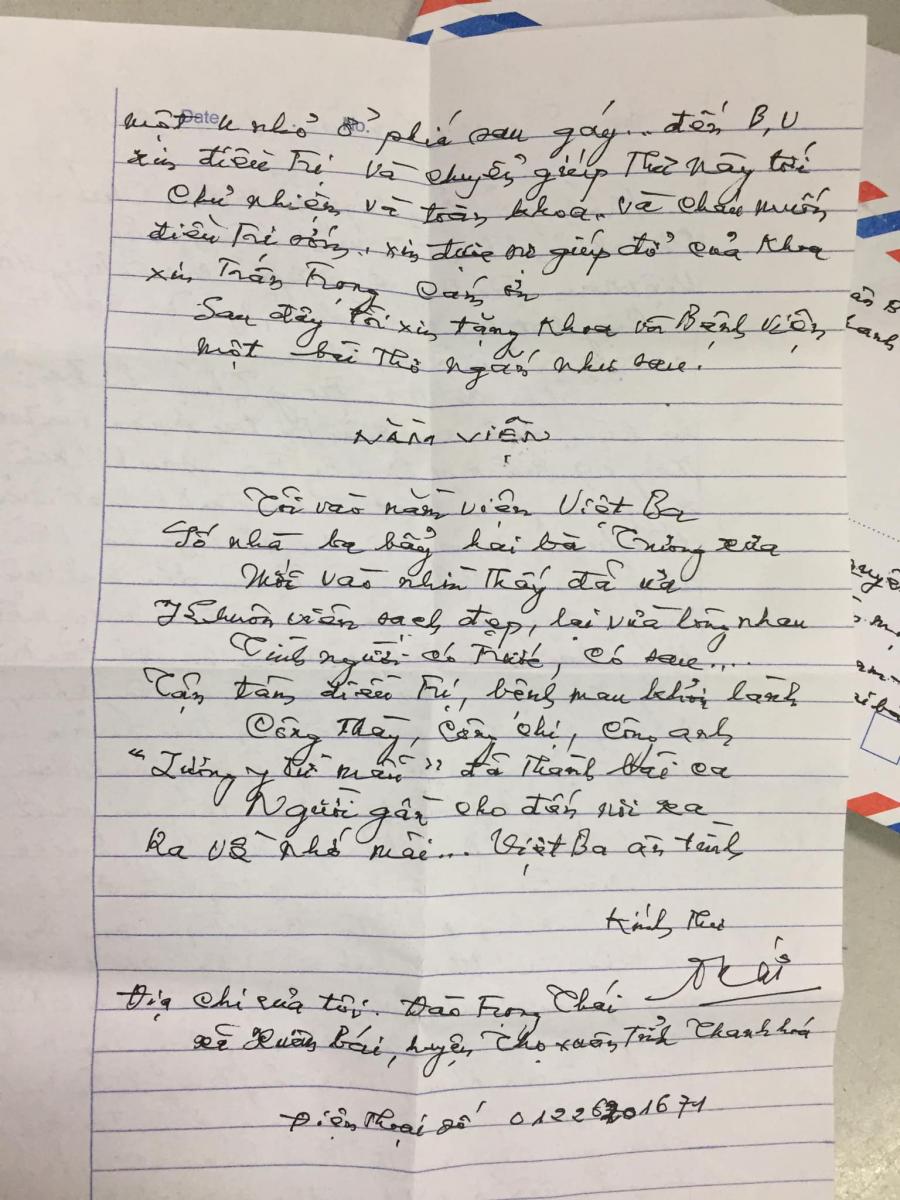 Date No.
một u nhỏ ở phía sau gáy... đến B, V
xin điều Trị và chuyển giúp Thư này tới
Chủ nhiệm và toàn khoa. và cháu muốn
điều Trị sớm. xin được sự giúp đỡ của Khoa
xin Trân Trọng Cám ơn
Sau đây Tôi xin tặng Khoa và Bệnh viện
một bài Thơ ngắn như sau.
NẰM VIỆN
Tôi vào nằm viện Việt Ba
Số nhà ba bẩy hai bà Trưng xưa
Mới vào nhìn Thấy đã ưa
Khuôn viên sạch đẹp, lại vừa lòng nhau
Tình người có Trước, có sau....
Tận tâm điều Trị, bệnh mau khỏi lành
Công Thầy, Công chị, Công anh
"Lương y từ mẫu" đã Thành bài ca
Người gần cho đến nơi xa
Ra về nhớ mãi... Việt Ba ân tình
Kính Thư
Địa chỉ của tôi. Đào Trọng Thái
xã Xuân Bái, huyện Thọ xuân Tỉnh Thanh hoá
Điện Thoại số